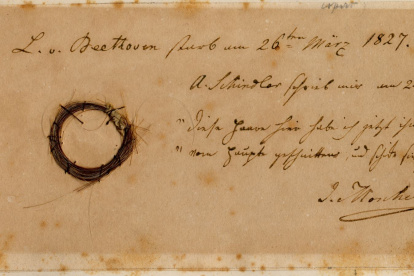 L. v. Beethoven starb am 26ten März 1827.
A. Schindler schrieb mir am 2
"diese Haare hier habe ich jetzt
"vom Haupte geschnitten, und
I. Mosche